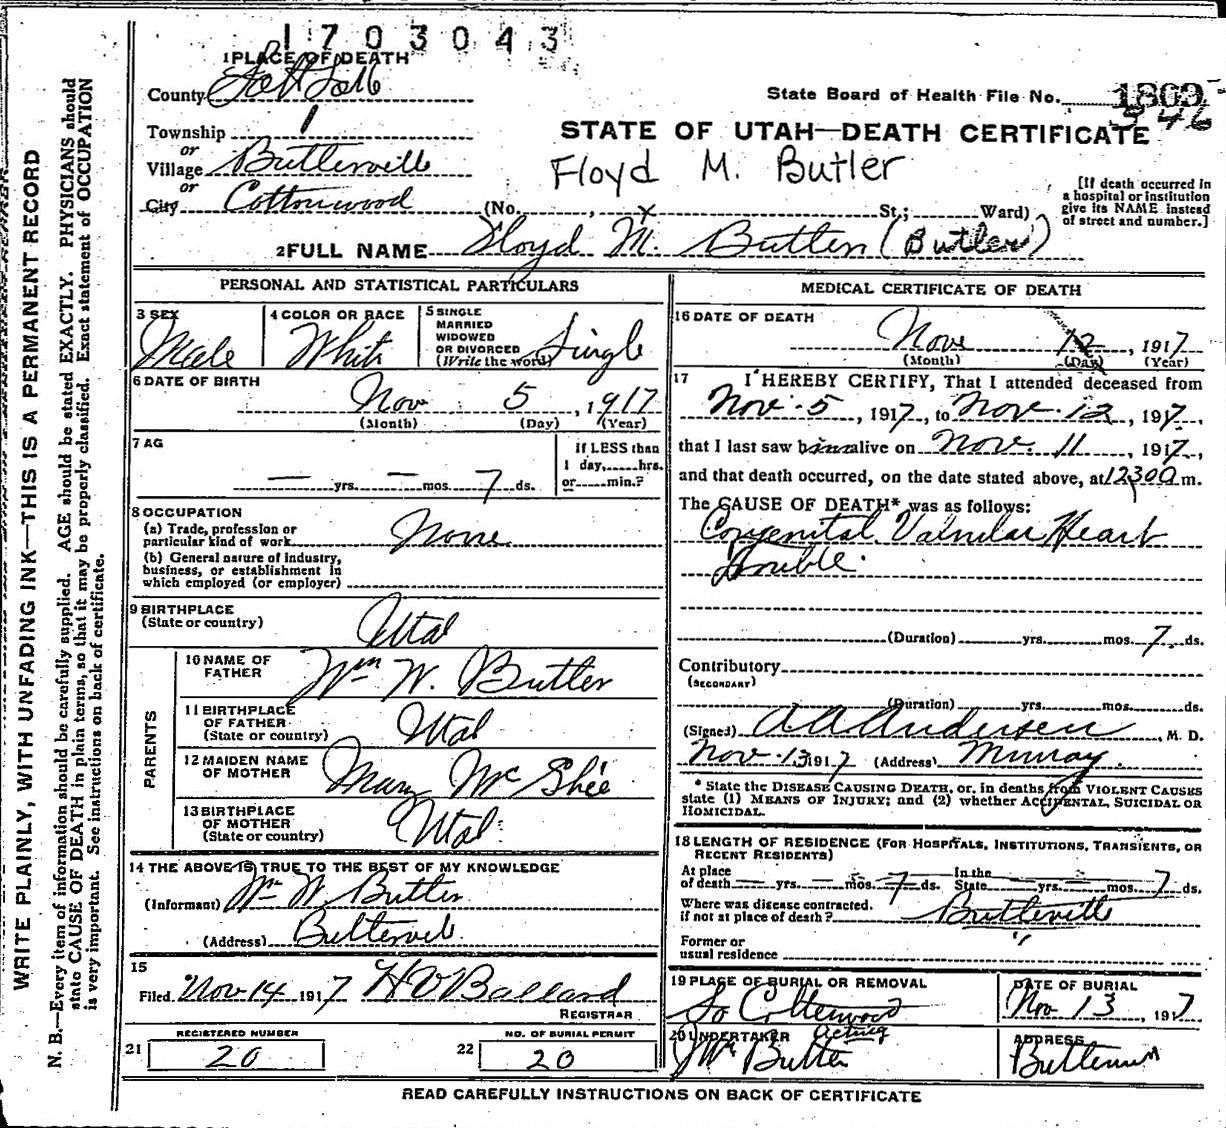 1703043
1 PLACE OF DEATH
County Salt Lake
State Board of Health File No. 1809
346
Township 1
or
Village Butlerville
or
City Cottonwood
STATE OF UTAH—DEATH CERTIFICATE
Floyd M. Butler
(No. , x St.; Ward)
[If death occurred in
a hospital or institution
give its NAME instead
of street and number.]
2 FULL NAME Floyd M. Butler (Butler)
WRITE PLAINLY, WITH UNFADING INK—THIS IS A PERMANENT RECORD
N. B.—Every item of information should be carefully supplied. AGE should be stated EXACTLY. PHYSICIANS should
state CAUSE OF DEATH in plain terms, so that it may be properly classified. Exact statement of OCCUPATION
is very important. See instructions on back of certificate.
PERSONAL AND STATISTICAL PARTICULARS
3 SEX
Male
4 COLOR OR RACE
White
5 SINGLE
MARRIED
WIDOWED
OR DIVORCED
(Write the word) Single
6 DATE OF BIRTH
Nov 5, 1917
(Month) (Day) (Year)
7 AG
— yrs. — mos. 7 ds.
If LESS than
1 day, hrs.
or min.?
8 OCCUPATION
(a) Trade, profession or
particular kind of work None
(b) General nature of industry,
business, or establishment in
which employed (or employer)
9 BIRTHPLACE
(State or country) Utah
PARENTS
10 NAME OF
FATHER Wm W. Butler
11 BIRTHPLACE
OF FATHER
(State or country) Utah
12 MAIDEN NAME
OF MOTHER Mary McGhie
13 BIRTHPLACE
OF MOTHER
(State or country) Utah
14 THE ABOVE IS TRUE TO THE BEST OF MY KNOWLEDGE
(Informant) Wm W Butler
(Address) Butlerville
15
Filed Nov 14 1917 H V Ballard
REGISTRAR
REGISTERED NUMBER
21 20
NO. OF BURIAL PERMIT
22 20
MEDICAL CERTIFICATE OF DEATH
16 DATE OF DEATH
Nove 12, 1917
(Month) (Day) (Year)
17 I HEREBY CERTIFY, That I attended deceased from
Nov. 5, 1917, to Nov. 12, 1917,
that I last saw him alive on Nov. 11, 1917,
and that death occurred, on the date stated above, at 12300a m.
The CAUSE OF DEATH* was as follows:
Congenital Valvular Heart
trouble.
(Duration) yrs. mos. 7 ds.
Contributory
(SECONDARY)
(Duration) yrs. mos. ds.
(Signed) A A Andersen, M. D.
Nov. 13 1917 (Address) Murray.
* State the DISEASE CAUSING DEATH, or, in deaths from VIOLENT CAUSES
state (1) MEANS OF INJURY; and (2) whether ACCIDENTAL, SUICIDAL OR
HOMICIDAL.
18 LENGTH OF RESIDENCE (FOR HOSPITALS, INSTITUTIONS, TRANSIENTS, OR
RECENT RESIDENTS)
At place
of death — yrs. — mos. 7 ds.
In the
State — yrs. — mos. 7 ds.
Where was disease contracted,
if not at place of death? Butlerville
Former or
usual residence "
19 PLACE OF BURIAL OR REMOVAL
So Cottonwood
DATE OF BURIAL
Nov 13, 1917
20 UNDERTAKER Acting
Butler
ADDRESS
Butlerville
READ CAREFULLY INSTRUCTIONS ON BACK OF CERTIFICATE